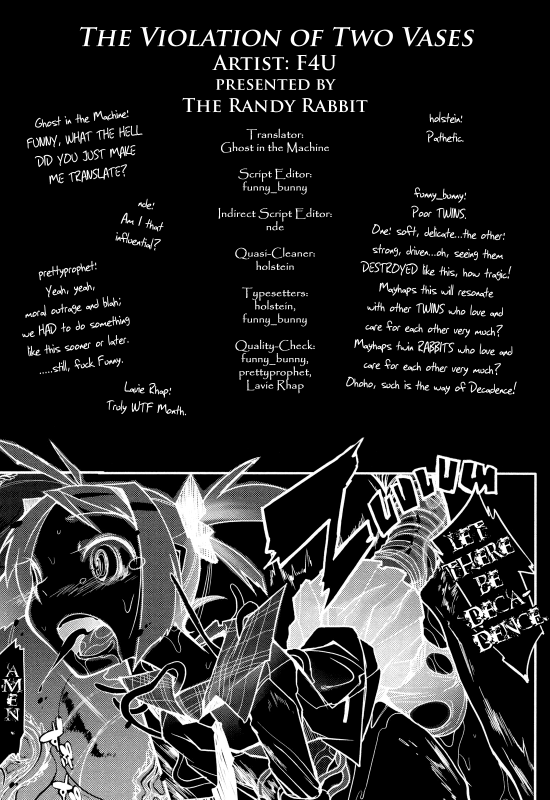 The Violation of Two Vases
Artist: F4U
presented by
The Randy Rabbit
Ghost in the Machine!
FUNNY, WHAT THE HELL
DID YOU JUST MAKE
ME TRANSLATE?
nde!
Am I that
influential?
prettyprophet!
Yeah, yeah,
moral outrage and blah;
we HAD to do something
like this sooner or later.
.....still, fuck Funny.
Lavie Rhap!
Truly WTF Month.
Translator:
Ghost in the Machine
Script Editor:
funny_bunny
Indirect Script Editor:
nde
Quasi-Cleaner:
holstein
Typesetters:
holstein,
funny_bunny
Quality-Check:
funny_bunny,
prettyprophet,
Lavie Rhap
holstein!
Pathetic.
funny_bunny!
Poor TWINS.
One! soft, delicate...the other!
strong, driven...oh, seeing them
DESTROYED like this, how tragic!
Mayhaps this will resonate
with other TWINS who love and
care for each other very much?
Mayhaps twin RABBITS who love and
care for each other very much?
Ohoho, such is the way of Decadence!
LET
THERE
BE
DECA-
DENCE.
AMEN.